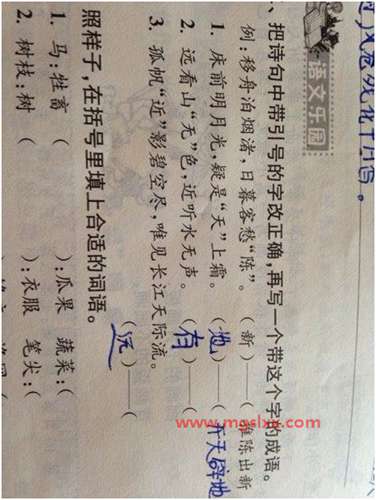 语文乐园
、把诗句中带引号的字改正确,再写一个带这个字的成语。
例:移舟泊烟渚,日暮客愁“陈”。(新)—(推陈出新
1. 床前明月光,疑是“天”上霜。(地)—(开天辟地
2. 远看山“无”色,近听水无声。(有)—(
3. 孤帆“近”影碧空尽,唯见长江天际流。(远)—(
照样子,在括号里填上合适的词语。
1. 马:牲畜 ( ):瓜果 蔬菜:(
2. 树枝:树 ( ):衣服 笔尖:(